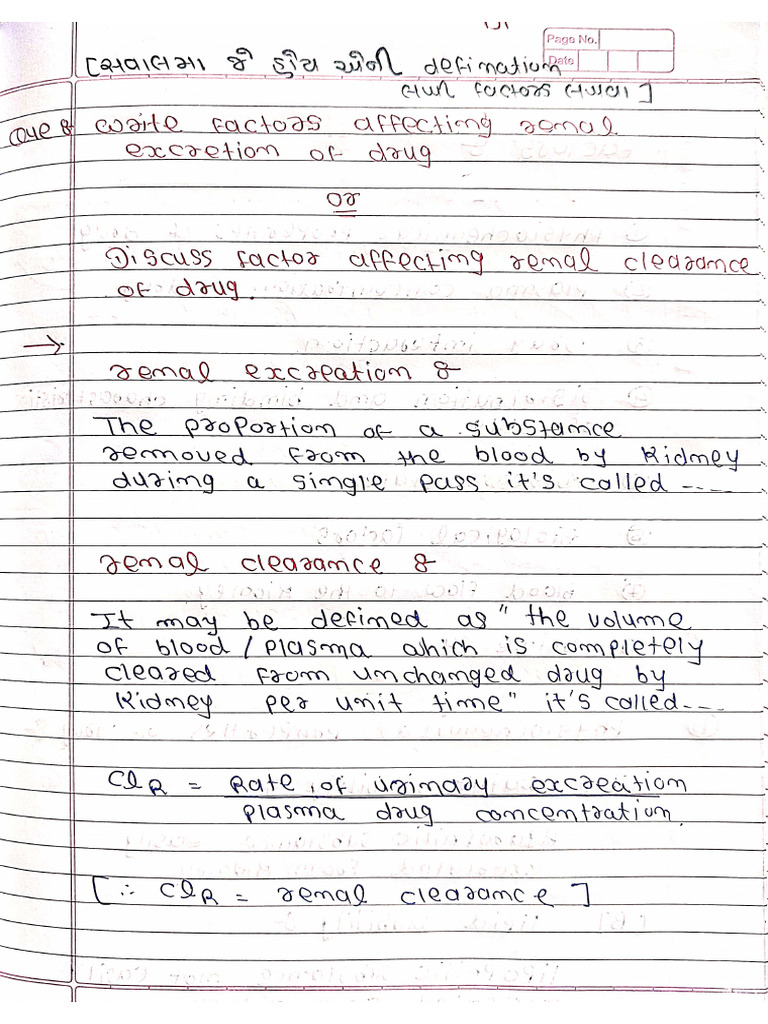 Page No.
Date
[સવાલમા જે હોય એની defination
લખી factors લખવા]
Que : write factors affecting renal
excretion of drug
or
Discuss factor affecting renal clearance
of drug.
→
renal excreation :
The proportion of a substance
removed from the blood by kidney
during a single pass it's called ----
renal clearance :
It may be defined as "the volume
of blood / plasma which is completely
cleared from unchanged drug by
kidney per unit time" it's called----
ClR = Rate of urinary excreation
plasma drug concentration.
[∴ ClR = renal clearance]